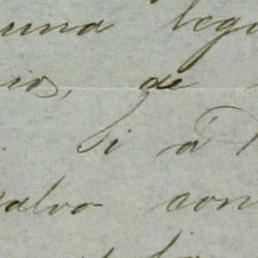 una legi
ios, de
Si á
salvo con